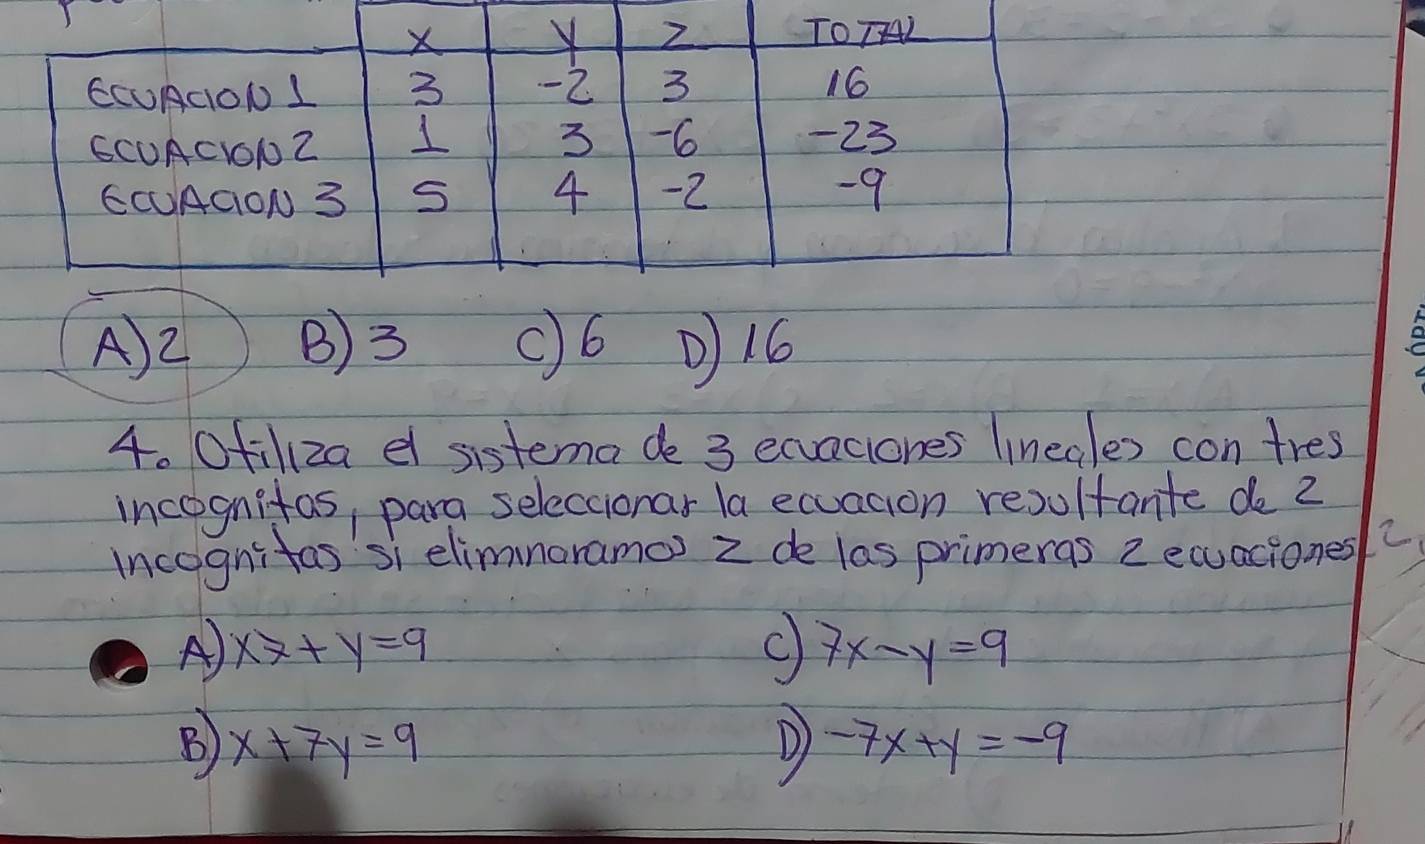 X Y Z TOTAL
ECUACION 1 3 -2 3 16
ECUACION 2 1 3 -6 -23
ECUACION 3 5 4 -2 -9
A) 2 B) 3 C) 6 D) 16
4. Utiliza el sistema de 3 ecuaciones lineales con tres
incognitas, para seleccionar la ecuacion resultante de 2
incognitas si eliminaramos z de las primeras 2 ecuaciones
A) x7 + y = 9 C) 7x - y = 9
B) x + 7y = 9 D) -7x + y = -9